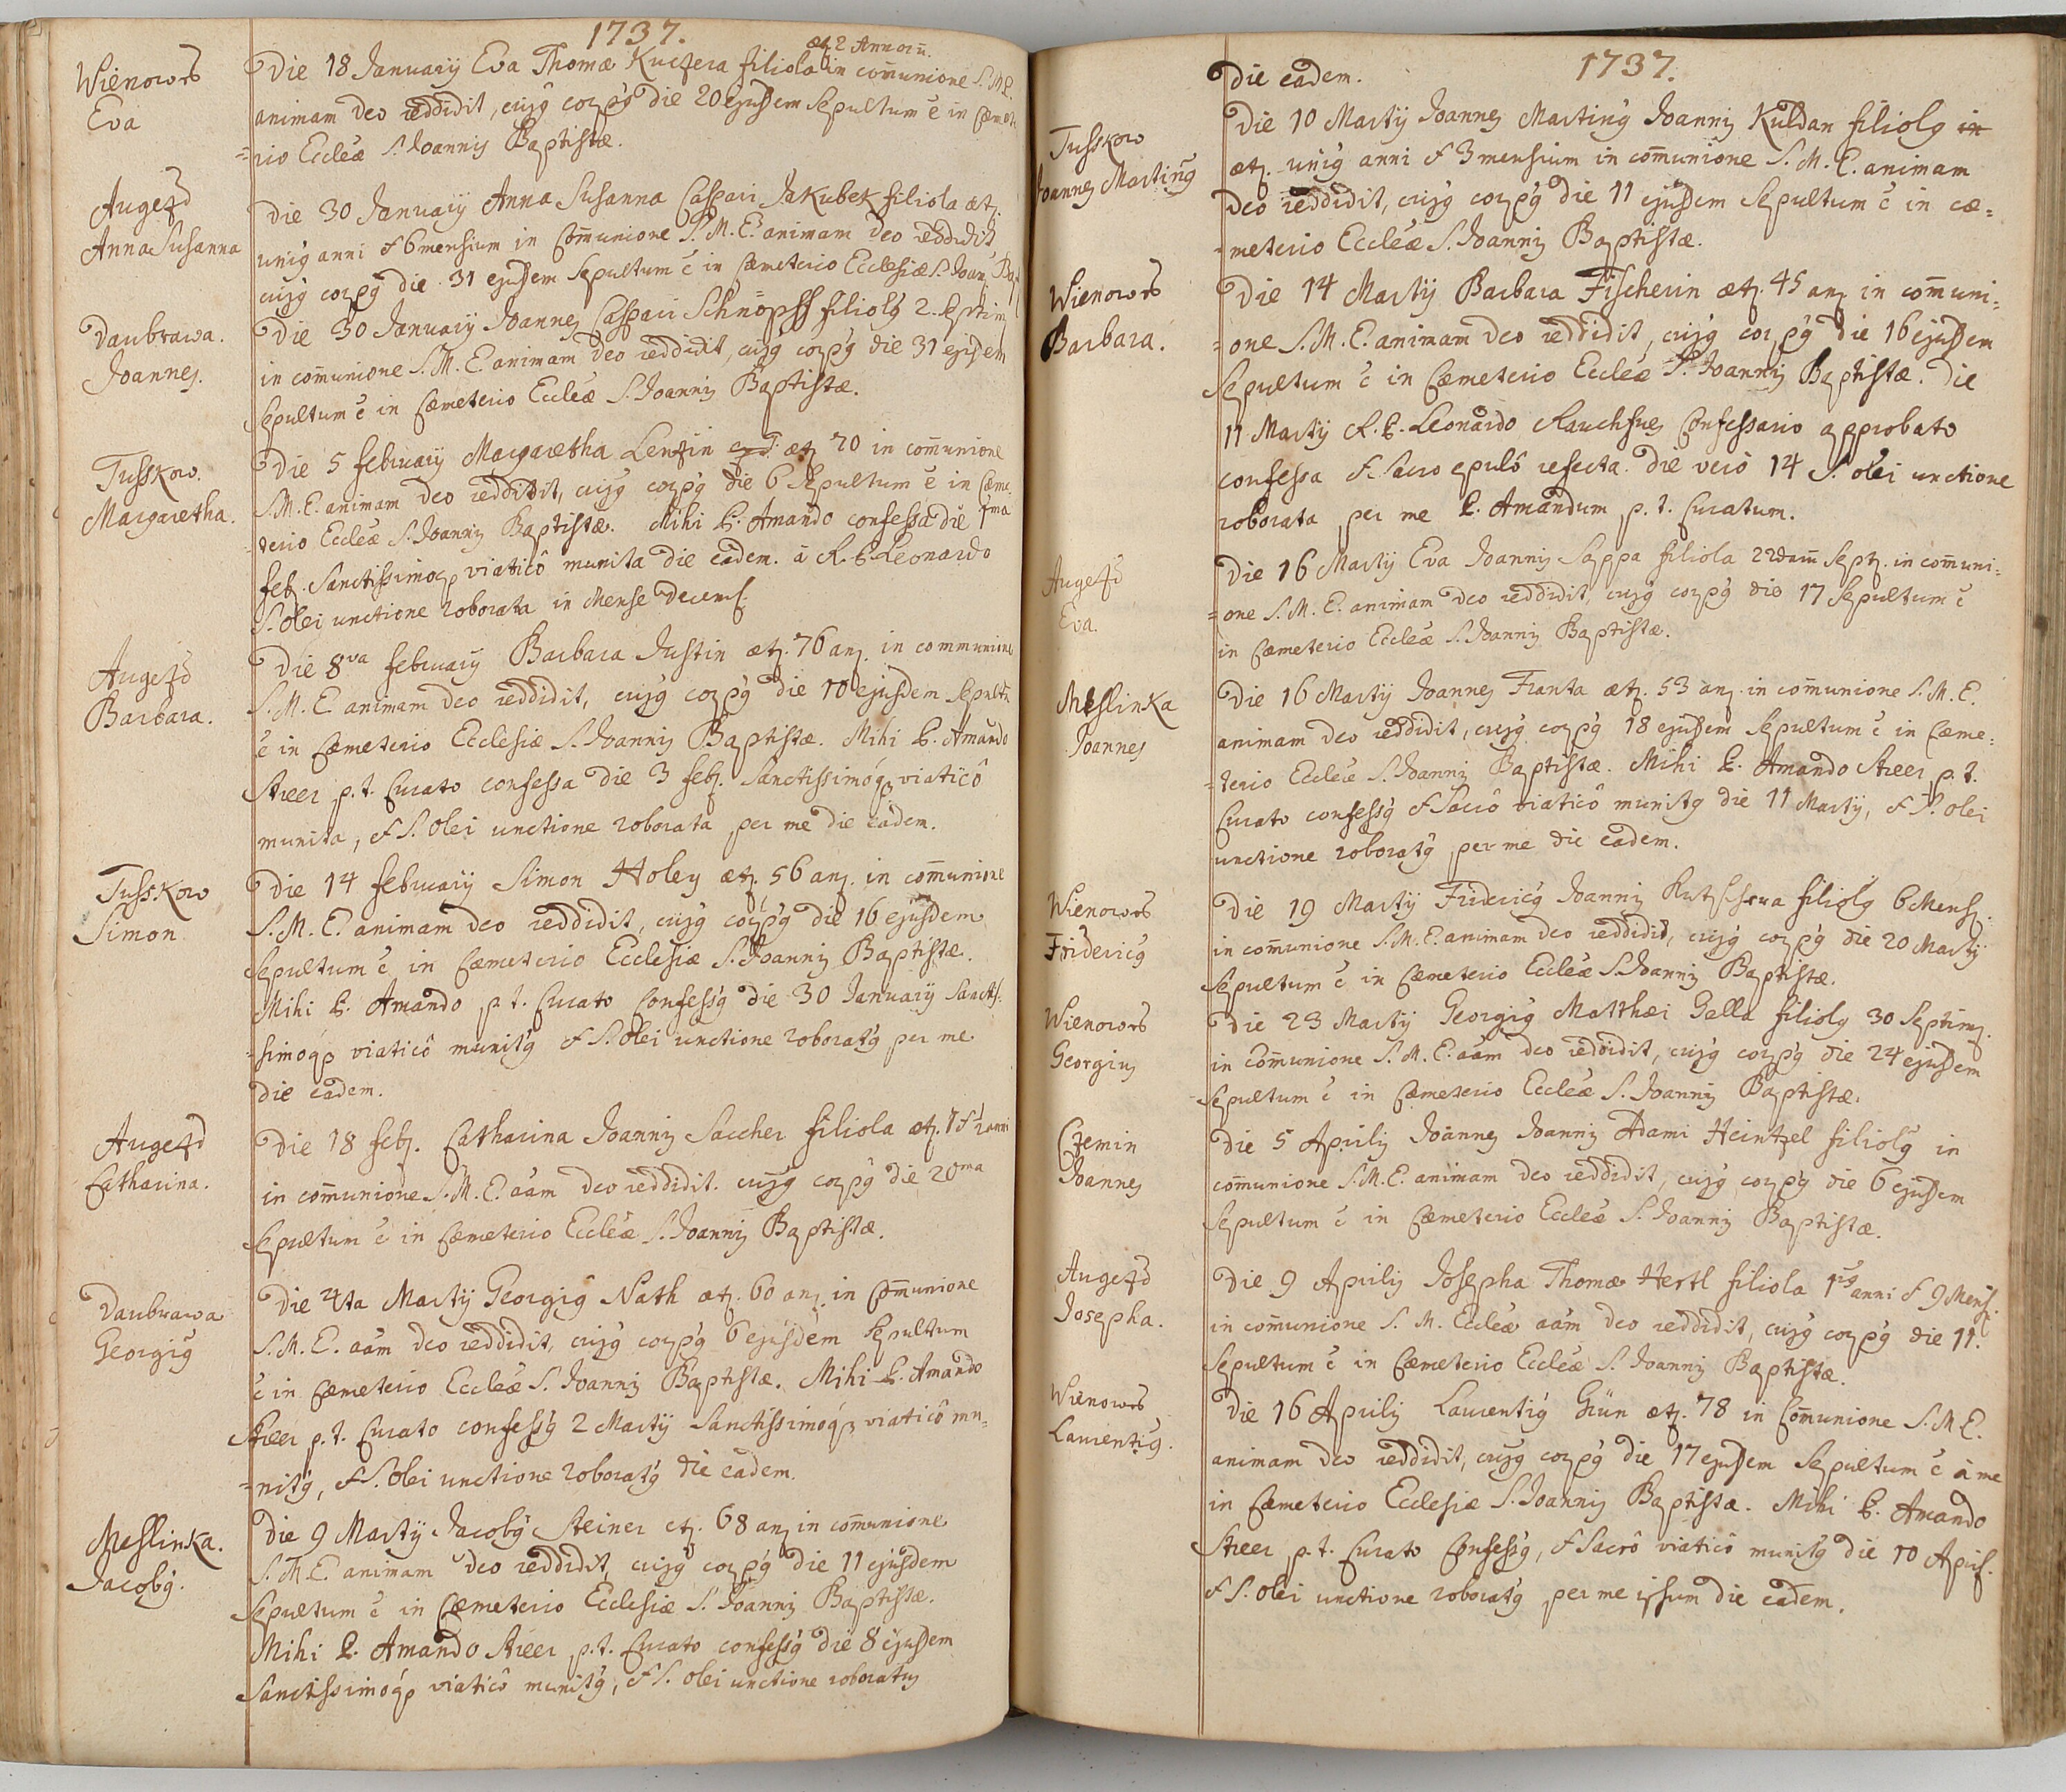 1737.
Wienowes
Eva
Die 18 January Eva Thomæ Kuczera filiola æt 2 Annorū. in com̄unione S. M. E.
animam deo reddidit, cujg corpg die 20 ejusdem sepultum ē in Cæmete
=rio Eccleæ S. Joannis Baptistæ.
Augezd
Anna Susanna
Die 30 January Anna Susanna Caspari Jakubek filiola æt.
unig anni & 6 mensium in Com̄unione S. M. E. animam deo reddidit
cujg corpg die 31 ejusdem sepultum ē in Cæmeterio Ecclesiæ S. Joan: Bap
Daubrawa.
Joannes.
Die 30 January Joannes Caspari Schnöpff filiolg 2. septim
in com̄unione S. M. E. animam deo reddidit, cujg corpg die 31 ejusdem
sepultum ē in Cæmeterio Eccleæ S. Joannis Baptistæ.
Tusskow.
Margaretha.
Die 5 february Margaretha Lentzin æt. 70 in com̄unione
S. M. E. animam deo reddidit, cujg corpg die 6 sepultum ē in Cæme
=terio Eccleæ S. Joannis Baptistæ. Mihi P. Amando confessa die 1ma
feb. Sanctissimoq viaticô munita die eadem. à R. P. Leonardo
S. Olei unctione roborata in Mense Decemb.
Augezd
Barbara.
Die 8va february Barbara Justin æt. 76 an. in communione
S. M. E. animam deo reddidit, cujg corpg die 10 ejusdem sepultū
ē in Cæmeterio Ecclesiæ S. Joannis Baptistæ. Mihi P. Amando
Streer p. t. Curato confessa die 3 feb. Sanctissimoq viaticô
munita, & S. Olei unctione roborata per me die eadem.
Tusskow
Simon
Die 14 february Simon Holey æt. 56 an. in com̄unione
S. M. E. animam deo reddidit, cujg corpg die 16 ejusdem
sepultum ē in Cæmeterio Ecclesiæ S. Joannis Baptistæ.
Mihi P. Amando p. t. Curato Confessg die 30 January Sanctis:
=simoq viaticô munitg & S. Olei unctione roboratg per me
die eadem.
Augezd
Catharina.
Die 18 feb. Catharina Joannis Saccher filiola æt. 1 & ½ anni
in com̄unione S. M. E. aām deo reddidit. cujg corpg die 20ma
sepultum ē in Cæmeterio Eccleæ S. Joannis Baptistæ.
Daubrawa
Georgig
Die 4ta Marty Georgig Nath æt. 60 an. in Com̄unione
S. M. E. aām deo reddidit, cujg corpg 6 ejusdem sepultum
ē in Cæmeterio Eccleæ S. Joannis Baptistæ. Mihi P. Amando
Streer p. t. Curato confessg 2 Marty Sanctissimoq viaticô mu=
=nitg, & S. Olei unctione roboratg die eadem.
Meslinka.
Jacobg.
Die 9 Marty Jacobg Steiner æt. 68 an. in com̄unione
S. M. E. animam deo reddidit, cujg corpg die 11 ejusdem
sepultum ē in Cæmeterio Ecclesiæ S. Joannis Baptistæ.
Mihi P. Amando Streer p. t. Curato confessg die 8 ejusdem
Sanctissimoq viaticô munitg, & S. Olei unctione roboratus
1737.
die eadem.
Tusskow
Joannes Marting
Die 10 Marty Joannes Marting Joannis Kuldan filiolg in
æt. unig anni & 3 mensium in com̄unione S. M. E. animam
deo reddidit, cujg corpg die 11 ejusdem sepultum ē in cæ=
=meterio Eccleæ S. Joannis Baptistæ.
Wienowes
Barbara.
Die 14 Marty Barbara Fischerin æt. 45 an. in com̄uni=
=one S. M. E. animam deo reddidit, cujg corpg die 16 ejusdem
sepultum ē in Cæmeterio Eccleæ S. Joannis Baptistæ. Die
11 Marty R. P. Leonardo Rauchfues Confessario approbato
confessa & Sacro epulô refecta. die verò 14 S. olei unctione
roborata per me P. Amandum p. t. Curatum.
Augezd
Eva.
Die 16 Marty Eva Joannis Sappa filiola 22 Sept. in com̄uni=
=one S. M. E. animam deo reddidit, cujg corpg die 17 sepultum ē
in Cæmeterio Eccleæ S. Joannis Baptistæ.
Meslinka
Joannes
Die 16 Marty Joannes Franta æt. 53 an. in com̄unione S. M. E.
animam deo reddidit, cujg corpg 18 ejusdem sepultum ē in Cæme=
=terio Eccleæ S. Joannis Baptistæ. Mihi P. Amando Streer p. t.
Curato confessg & Sacrô viaticô munitg die 11 Marty, & S. olei
unctione roboratg per me die eadem.
Wienowes
Fridericg
Die 19 Marty Fridericg Joannis filiolg 6 Mens.
in com̄unione S. M. E. animam deo reddidit, cujg corpg die 20 Marty
sepultum ē in Cæmeterio Eccleæ S. Joannis Baptistæ.
Wienowes
Georgius
Die 23 Marty Georgig Matthæi Galla filiolg 30 Septim.
in Com̄unione S. M. E. aām deo reddidit, cujg corpg die 24 ejusdem
sepultum ē in Cæmeterio Eccleæ S. Joannis Baptistæ.
Czemin
Joannes
Die 5 Aprilis Joannes Joannis Adami Heintzel filiolg in
com̄unione S. M. E. animam deo reddidit, cujg corpg die 6 ejusdem
sepultum ē in Cæmeterio Eccleæ S. Joannis Baptistæ.
Augezd
Josepha.
Die 9 Aprilis Josepha Thomæ Hertl filiola 1us anni & 9 Mens.
in com̄unione S. M. Eccleæ aām deo reddidit, cujg corpg die 11.
sepultum ē in Cæmeterio Eccleæ S. Joannis Baptistæ.
Wienowes
Laurentig.
Die 16 Aprilis Laurentig Grün æt. 78 in Com̄unione S. M. E.
animam deo reddidit, cujg corpg die 17 ejusdem sepultum ē à me
in Cæmeterio Ecclesiæ S. Joannis Baptistæ. Mihi P. Amando
Streer p. t. Curato Confessg, & Sacrô viaticô munitg die 10 April.
& S. Olei unctione roboratg per me ipsum die eadem.